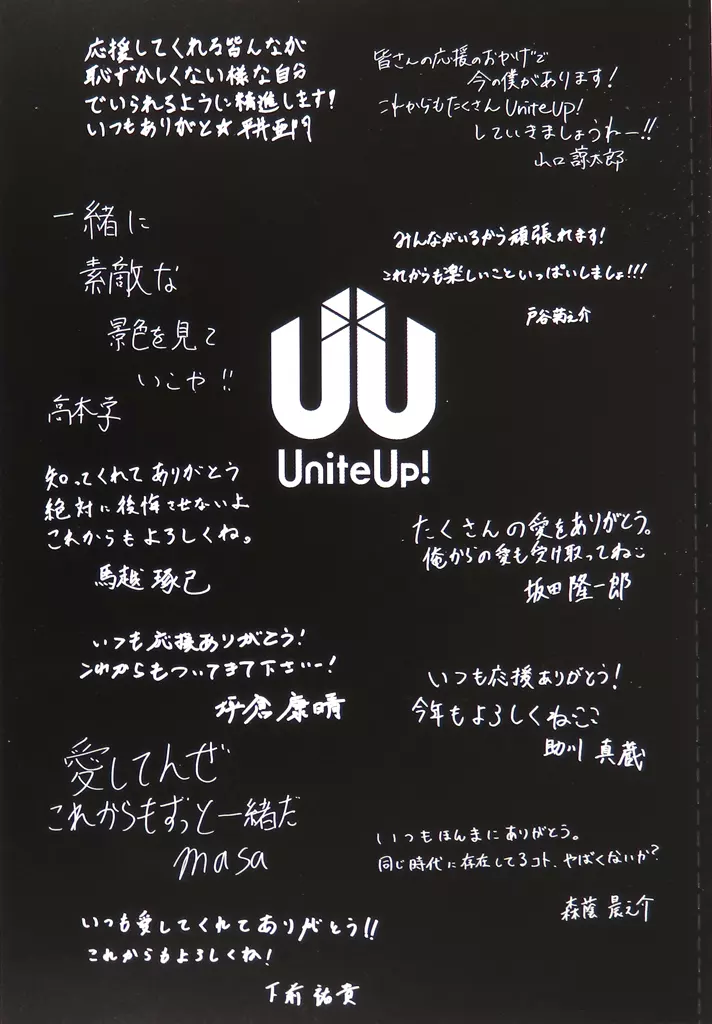 応援してくれる皆んなが
恥ずかしくない様な自分
でいられるように精進します!
いつもありがと☆ 平井亜門
皆さんの応援のおかげで
今の僕があります!
これからもたくさんUniteUp!
していきましょうねー!!
山口 諒太郎
一緒に
素敵な
景色を見て
いこや!!
高本学
みんながいるから頑張れます!
これからも楽しいこといっぱいしましょ!!!
戸谷菊之介
UniteUp!
知ってくれてありがとう
絶対に後悔させないよ
これからもよろしくね。
馬越 琢己
たくさんの愛をありがとう。
俺からの愛も受け取ってね
坂田 隆一郎
いつも応援ありがとう!
これからもついてきて下さいー!
坪倉 康晴
いつも応援ありがとう!
今年もよろしくね
助川 真蔵
愛してんぜ
これからもずっと一緒だ
masa
いつもほんまにありがとう。
同じ時代に存在してるコト、やばくないか?
森蔭 晨之介
いつも愛してくれてありがとう!!
これからもよろしくね!
下前 祐貴